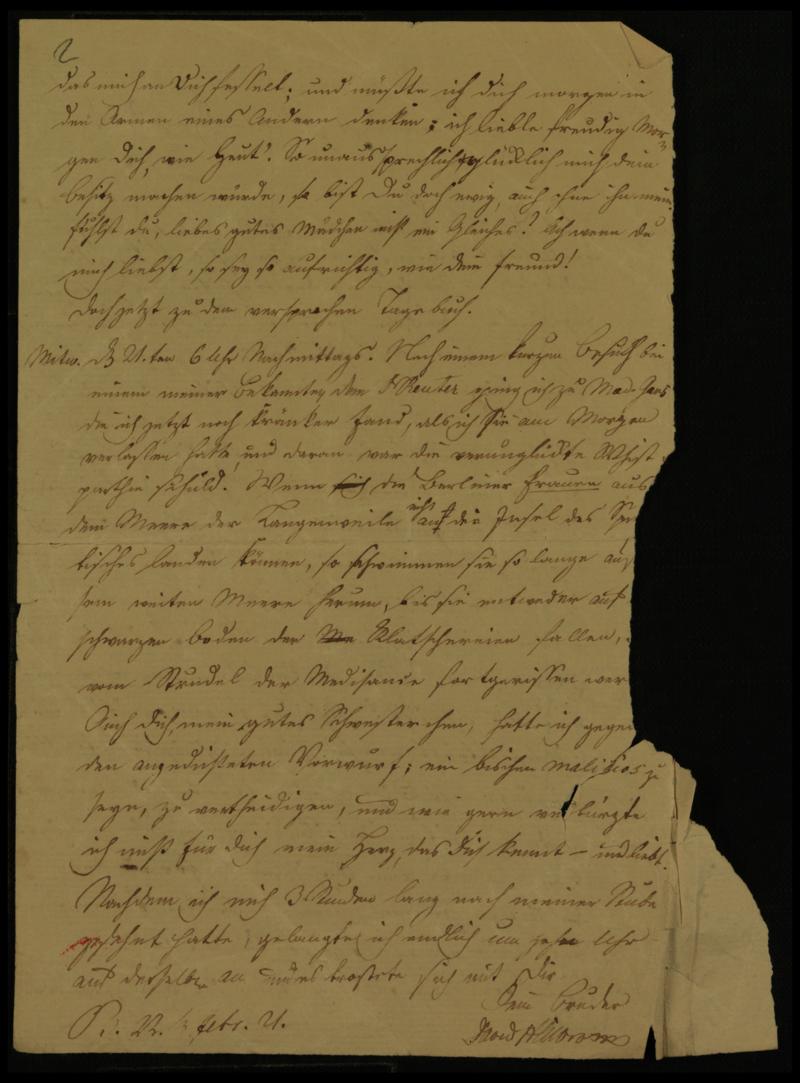 2
das mich an Dich fesselt; und müßte ich dich morgen in
den Armen eines Andern denken; ich liebte freudig Mor-
gen Dich, wie Heut'. So unaussprechlich glücklich mich dein
Besitz machen würde, so bist Du doch ewig, auch ohne ihn mein.
Fühlst du, liebes gutes Mädchen nicht ein Gleiches? Ach wenn du
mich liebst, so sey so aufrichtig, wie dein Freund!
Doch jetzt zu dem versprochen Tagebuch.
Mittw. d 21. ten 6 Uhr Nachmittags. Nach einem kurzen Besuch bei
einem meiner Bekannten, dem Reuter ging ich zu Mad.
die ich jetzt noch kränker fand, als ich Sie am Morgen
verlassen hatte und daran war die verunglückte Whist
parthie schuld. Wenn sich die Berliner Frauen aus
dem Meere der Langenweile nicht auf die Insel des Sp
tisches landen können, so schwimmen sie so lange
sem weiten Meere herum, bis sie entweder auf
schwarzen Boden der Klatschereien fallen,
vom Strudel der Medisance fortgerissen wer
Auch Dich, mein gutes Schwesterchen, hatte ich gegen
den angedichteten Vorwurf; ein bischen malitiös zu
seyn, zu vertheidigen, und wie gern verbürgte
ich nicht für Dich mein Herz, das dich kennt – und liebt.
Nachdem ich mich 3 Stunden lang nach meiner Stube
gesehnt hatte, gelangte ich endlich um zehn Uhr
auf derselben an und es tröstete sich mit Dir
Dein Bruder
22. Febr. 21.